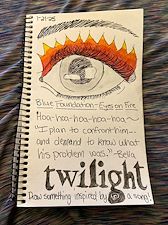 1-21-25
Blue Foundation - Eyes on Fire
Hoa-hoa-hoa-hoa-hoa~
"I plan to confront him
and demand to know what
his problem was." -Bella
twilight
Draw something inspired by a song!